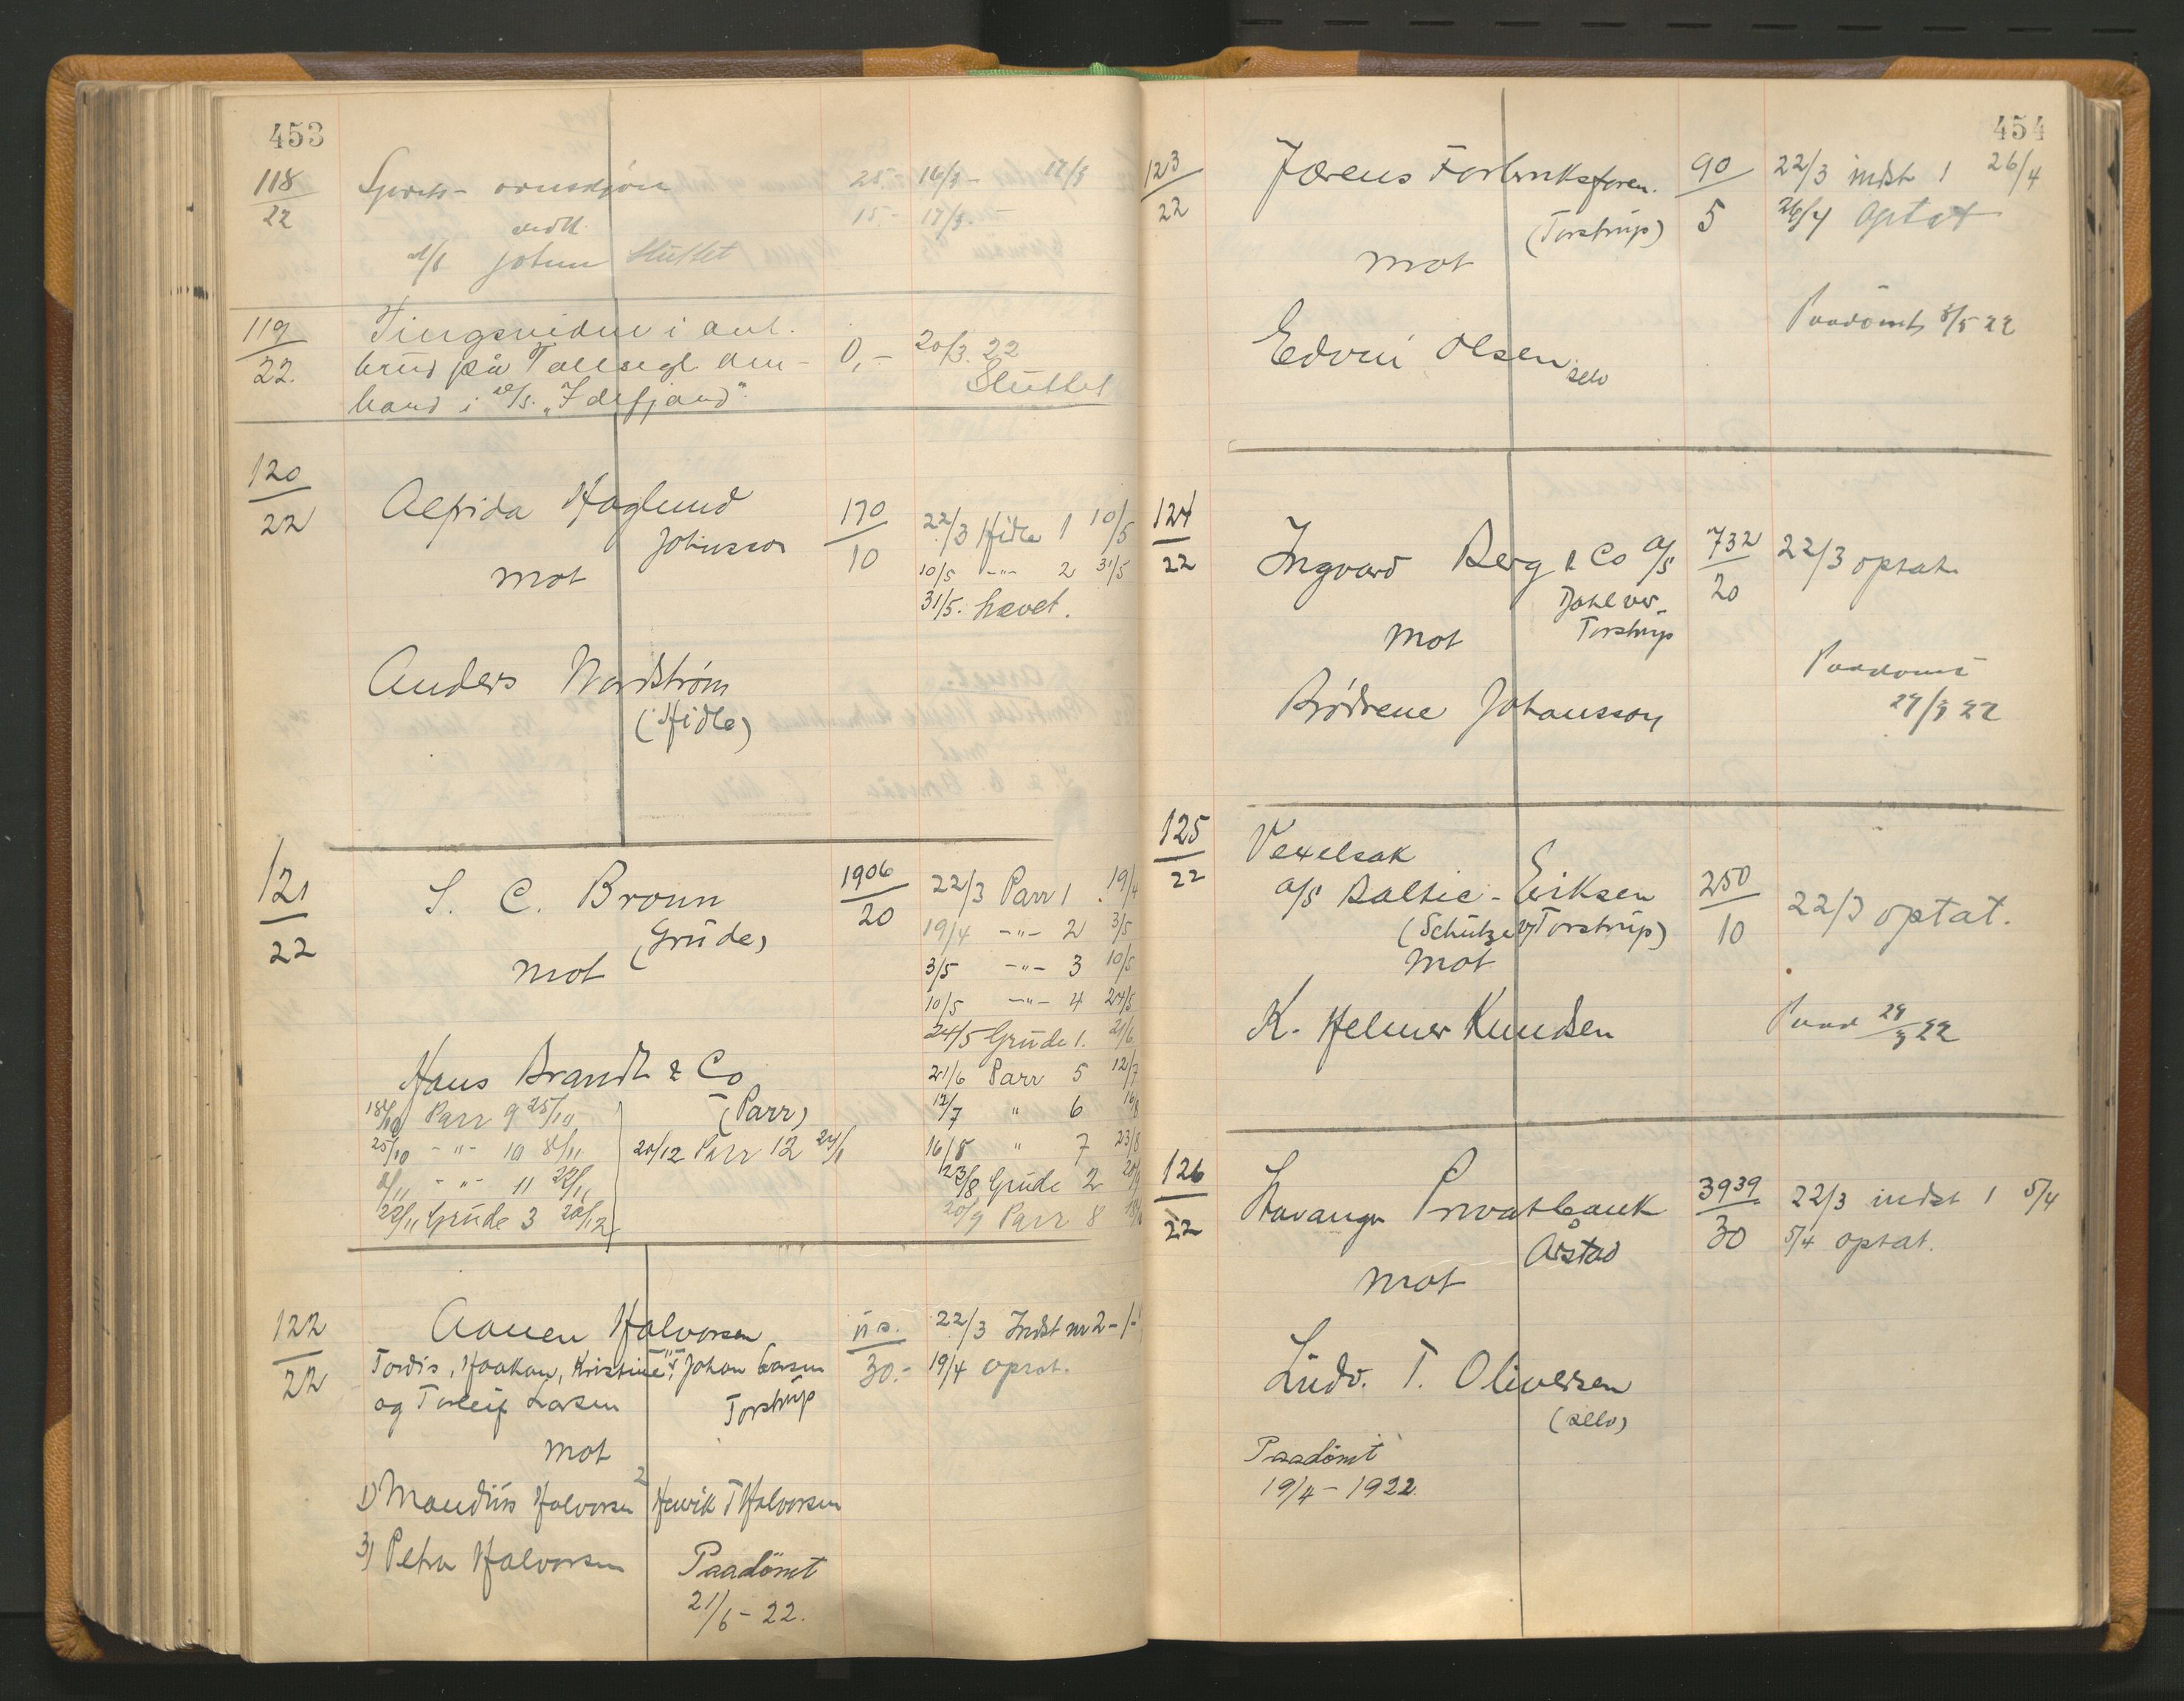 453
118/22 25.- 16/3 - 17/3
vedk. 15- 17/3. -
Sluttet
119/22. Tingsvidne i anl.
brud på 0,- 20/3. 22
i Sluttet
120/22
Alfrida Haglund 170/10 22/3 Hidle 1 10/5
Johnsson 10/5 -"- 2 31/5
mot 31/5. hævet.
Anders Nordstrøm
(Hidle)
121/22 S. C. Broun 1906/20 22/3 Parr 1 19/4
(Grude) 19/4 -"- 2 3/5
mot 3/5 -"- 3 10/5
10/5 -"- 4 24/5
24/5 Grude 1. 21/6
Hans Brandt & Co 21/6 Parr 5 12/7
(Parr) 12/7 " 6 16/8
18/10 Parr 9 25/10
25/10 -"- 10 8/11 20/12 Parr 12 24/1 16/8 " 7 23/8
8/11 -"- 11 22/11 23/8 Grude 2 20/9
22/11 Grude 3 20/12 20/9 Parr 8 18/10
122/22 Aanen Halvorsen 22/3 Indst nr 2 -
Tordis, Haakon, Kristine, Johan Larsen 30.- 19/4 optat.
og Torleif Larsen Torstrup
mot
1) Maudius Halvorsen 2 Henrik T Halvorsen
3) Petra Halvorsen Paadömt
21/6 - 22.
454
123/22 Jærens Forbruksforen. 90/5 22/3 indst 1 26/4
(Torstrup) 26/4 optat
mot
Paadömt 3/5 22
Edvin Olsen
selv
124/22
Ingvard Berg & Co A/S 732/20 22/3 optat.
Dahl ver.
Torstrup
mot
Paadömt
Brødrene Johansson 29/3 22
125/22 Vexelsak
A/S Baltic - Eriksen 250/10 22/3 optat.
(Schütze v/ Torstrup)
mot
K. Helmer Knudsen Paad 29/3 22
126/22 Stavanger Privatbank 3939/30 22/3 indst 1 5/4
Årstad 5/4 optat.
mot
Ludv. T. Oliversen
(selv)
Paadömt
19/4 - 1922.